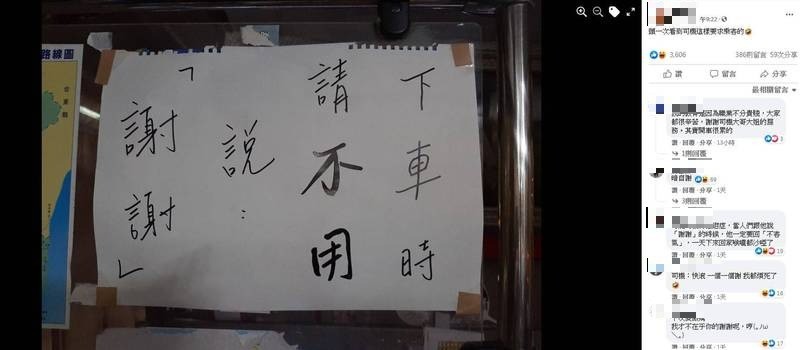 下車時
請不用
說：
「謝謝」
路線圖
午9:22
頭一次看到司機這樣要求乘客的🤣
3,606
386則留言 59次分享
讚 留言 分享
最相關留言
因為職業不分貴賤，大家
都很辛苦，謝謝司機大哥大姐的服
務，其實開車很累的
讚・回覆・分享・13小時
3
1則回覆
暗自謝
69
讚・回覆・分享・1天
3則回覆
症，當人們跟他說
「謝謝」的時候，他一定要回「不客
氣」，一天下來回家喉嚨都沙啞了
讚・回覆・分享・1天
19
司機：快滾 一個一個謝 我都煩死了
🤣
讚・回覆・分享・1天
16
我才不在乎你的謝謝呢，哼
讚・回覆・分享・1天
17